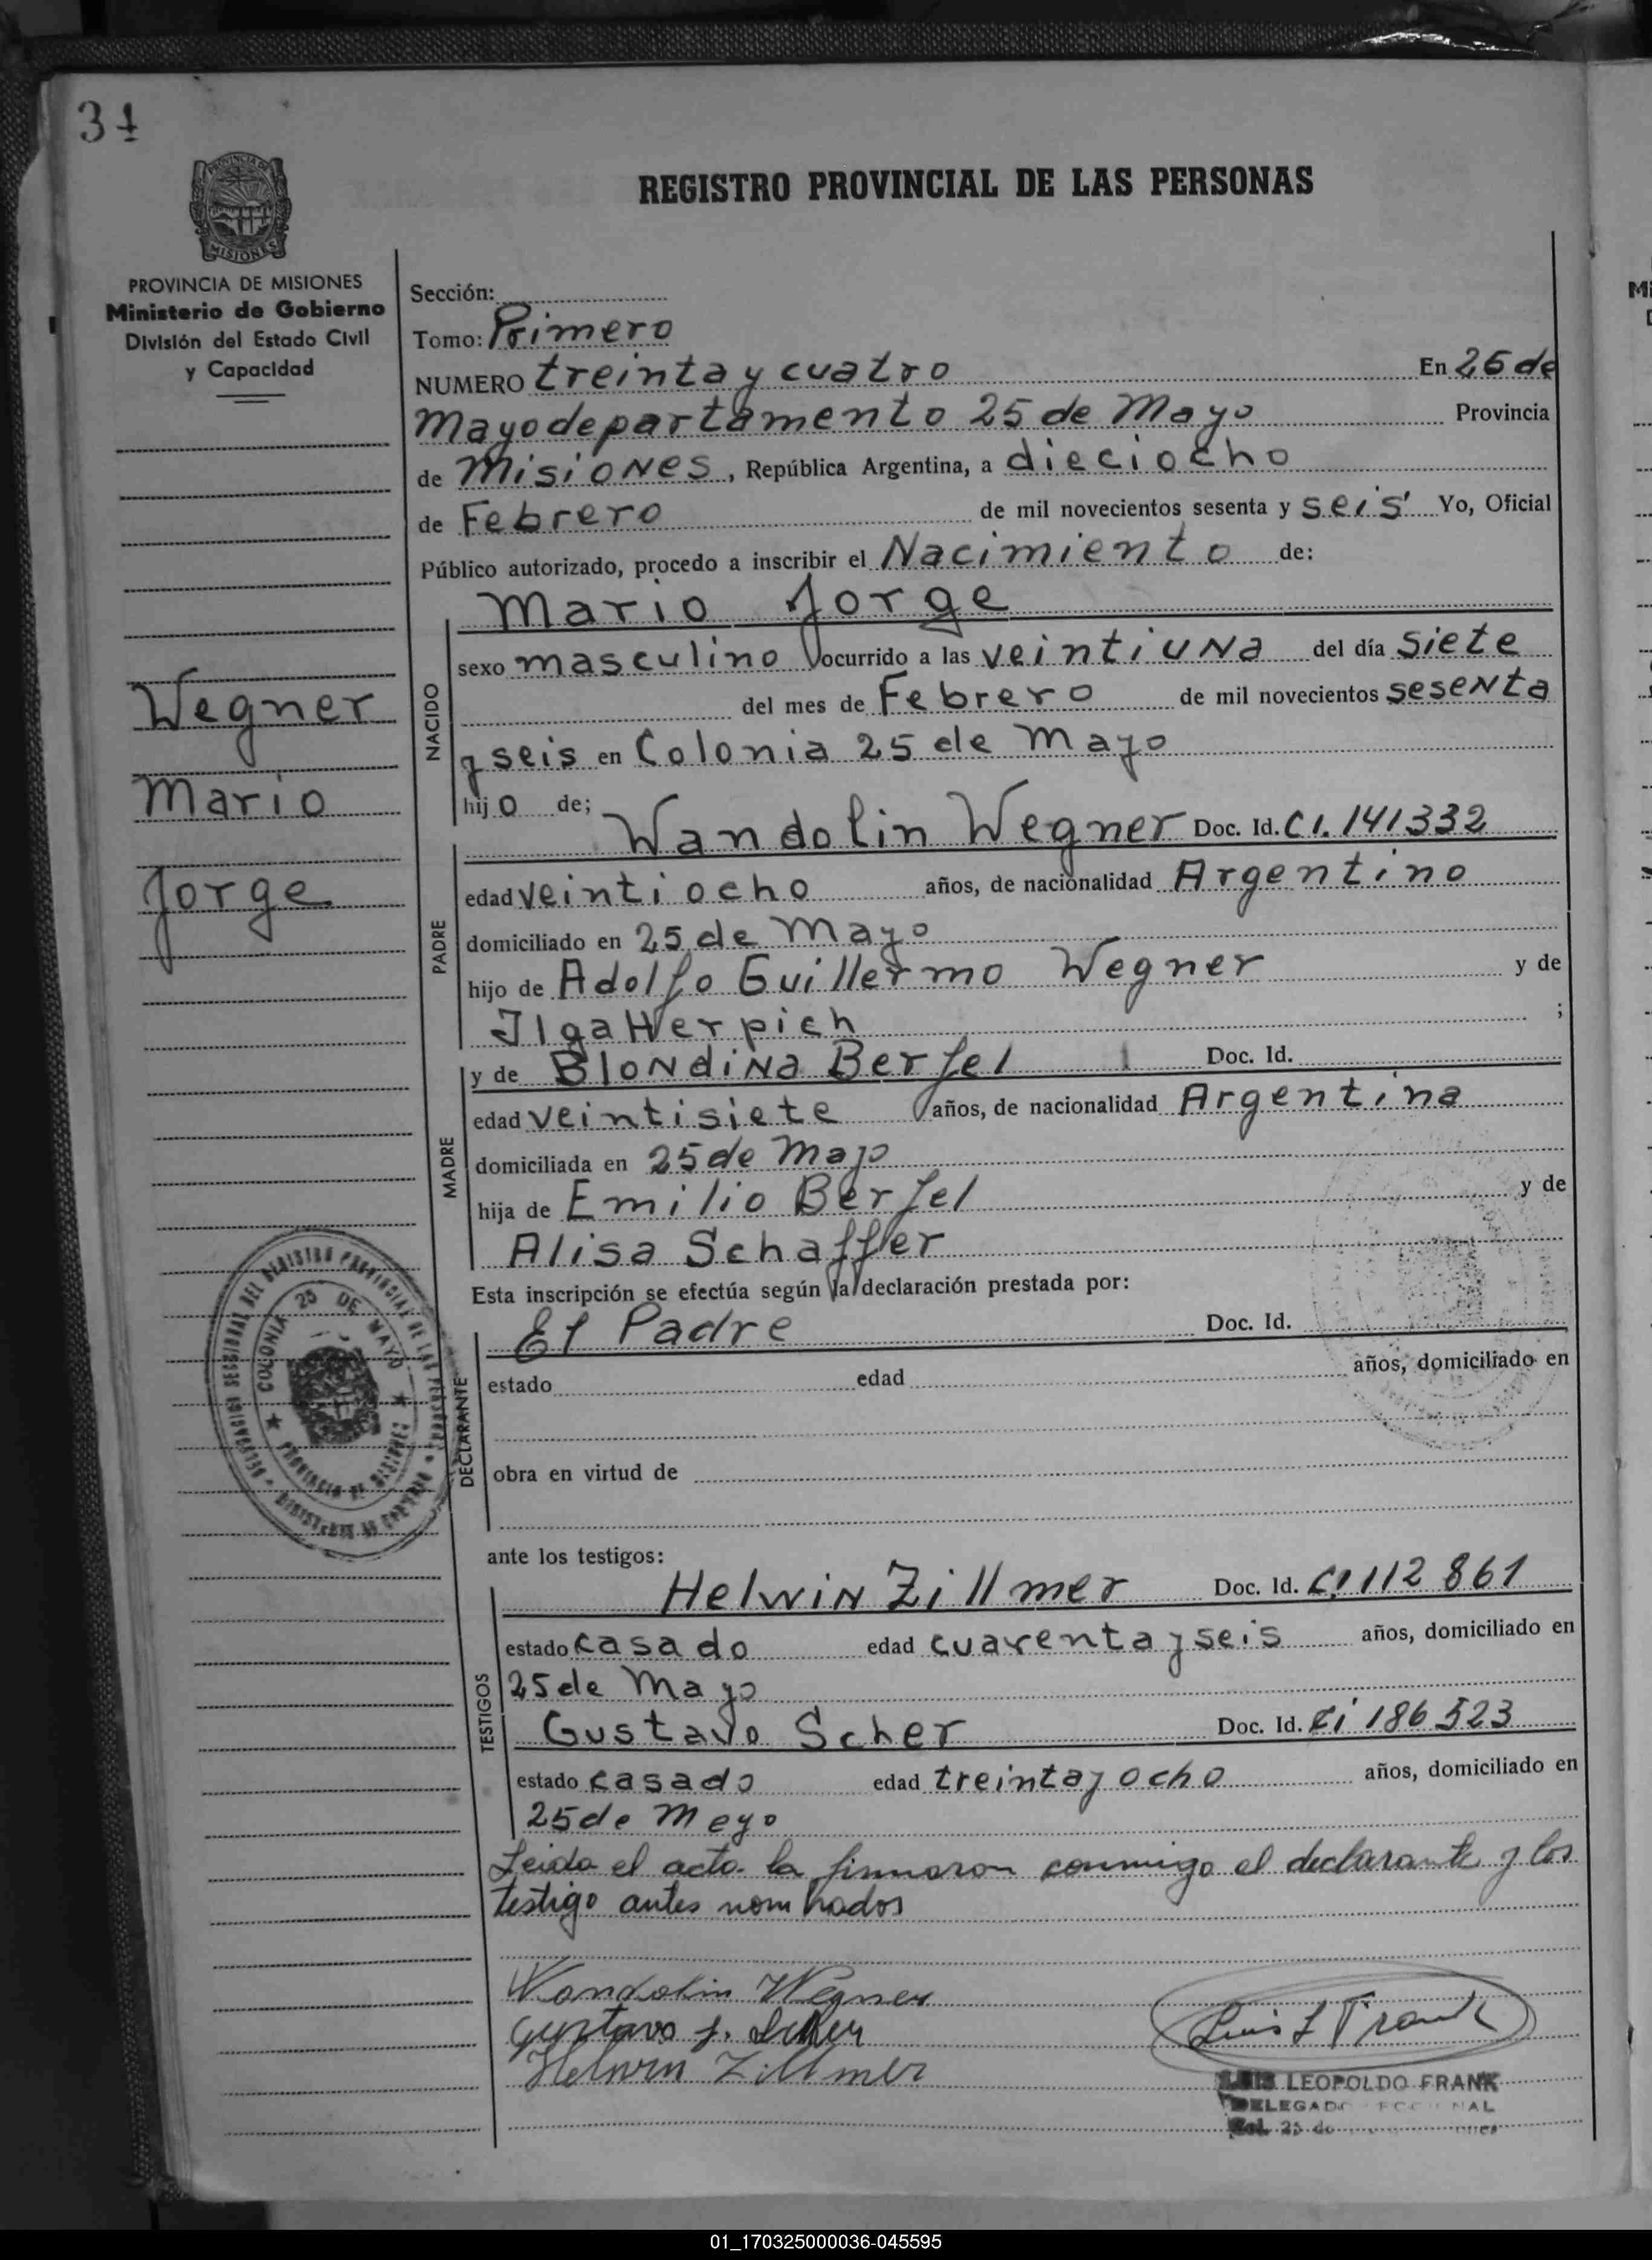 34
PROVINCIA DE
MISIONES
REGISTRO PROVINCIAL DE LAS PERSONAS
PROVINCIA DE MISIONES
Ministerio de Gobierno
División del Estado Civil
y Capacidad
Wegner
Mario
Jorge
Sección:
Tomo: Primero
NUMERO treinta y cuatro En 25 de
Mayo departamento 25 de Mayo Provincia
de Misiones, República Argentina, a dieciocho
de Febrero de mil novecientos sesenta y seis Yo, Oficial
Público autorizado, procedo a inscribir el Nacimiento de:
Mario Jorge
NACIDO
sexo masculino ocurrido a las veintiuna del día siete
del mes de Febrero de mil novecientos sesenta
y seis en Colonia 25 de Mayo
hijo de;
PADRE
Wandolin Wegner Doc. Id. CI. 141332
edad veintiocho años, de nacionalidad Argentino
domiciliado en 25 de Mayo
hijo de Adolfo Guillermo Wegner y de
Ilga Herpich ;
MADRE
y de Blondina Berfel Doc. Id.
edad veintisiete años, de nacionalidad Argentina
domiciliada en 25 de Mayo
hija de Emilio Berfel y de
Alisa Schaffer
Esta inscripción se efectúa según la declaración prestada por:
DECLARANTE
El Padre Doc. Id.
estado edad años, domiciliado en
obra en virtud de
COLONIA 25 DE MAYO
PROVINCIA DE MISIONES
ante los testigos:
TESTIGOS
Helwin Zillmer Doc. Id. CI 112 861
estado casado edad cuarenta y seis años, domiciliado en
25 de Mayo
Gustavo Scher Doc. Id. Ci 186 523
estado casado edad treinta y ocho años, domiciliado en
25 de Meyo
Leida el acta la firmaron conmigo el declarante y los
testigo antes nombrados
Wandolin Wegner
Gustavo Scher
Helwin Zillmer
Luis L Frank
LUIS LEOPOLDO FRANK
DELEGADO
Col. 25 de
01_170325000036-045595